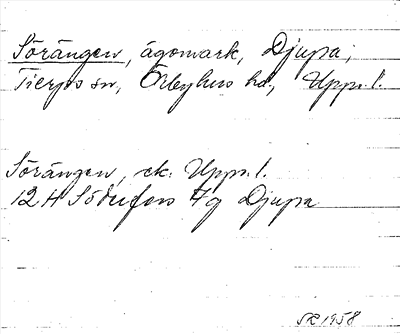 Sörängen, ägomark, Djupa,
Tierps sn, Örbyhus hd, Uppl.
Sörängen, ek. Uppl.
12 H Söderfors 7g Djupa
SR 1958